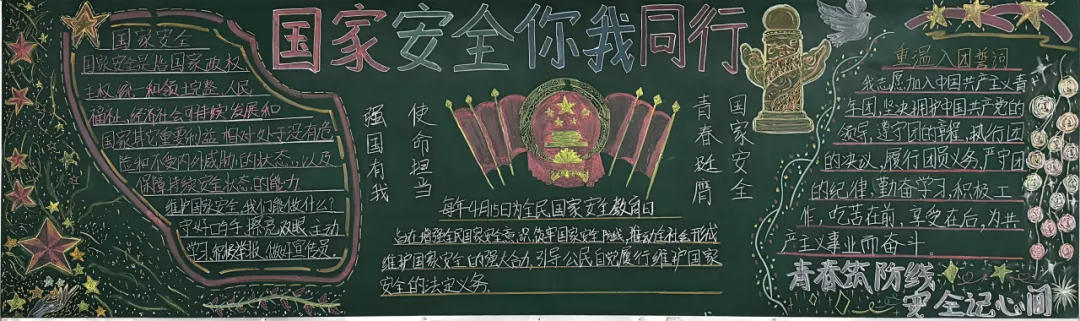 国家安全你我同行
国家安全
国家安全是指国家政权
主权、统一和领土完整、人民
福祉、经济社会可持续发展和
国家其它重要利益相对处于没有危
险和不受内外威胁的状态,以及
保障持续安全状态的能力
维护国家安全,我们能做什么?
守好口与手,擦亮双眼,主动
学习,积极举报,做好宣传员。
强国有我
使命担当
青春挺膺
国家安全
每年4月15日为全民国家安全教育日
旨在增强全民国家安全意识,筑牢国家安全防线,推动全社会形成
维护国家安全的强大合力,引导公民自觉履行维护国家
安全的法定义务。
重温入团誓词
我志愿加入中国共产主义青
年团,坚决拥护中国共产党的
领导,遵守团的章程,执行团
的决议,履行团员义务,严守团
的纪律,勤奋学习,积极工
作,吃苦在前,享受在后,为共
产主义事业而奋斗。
青春筑防线
安全记心间